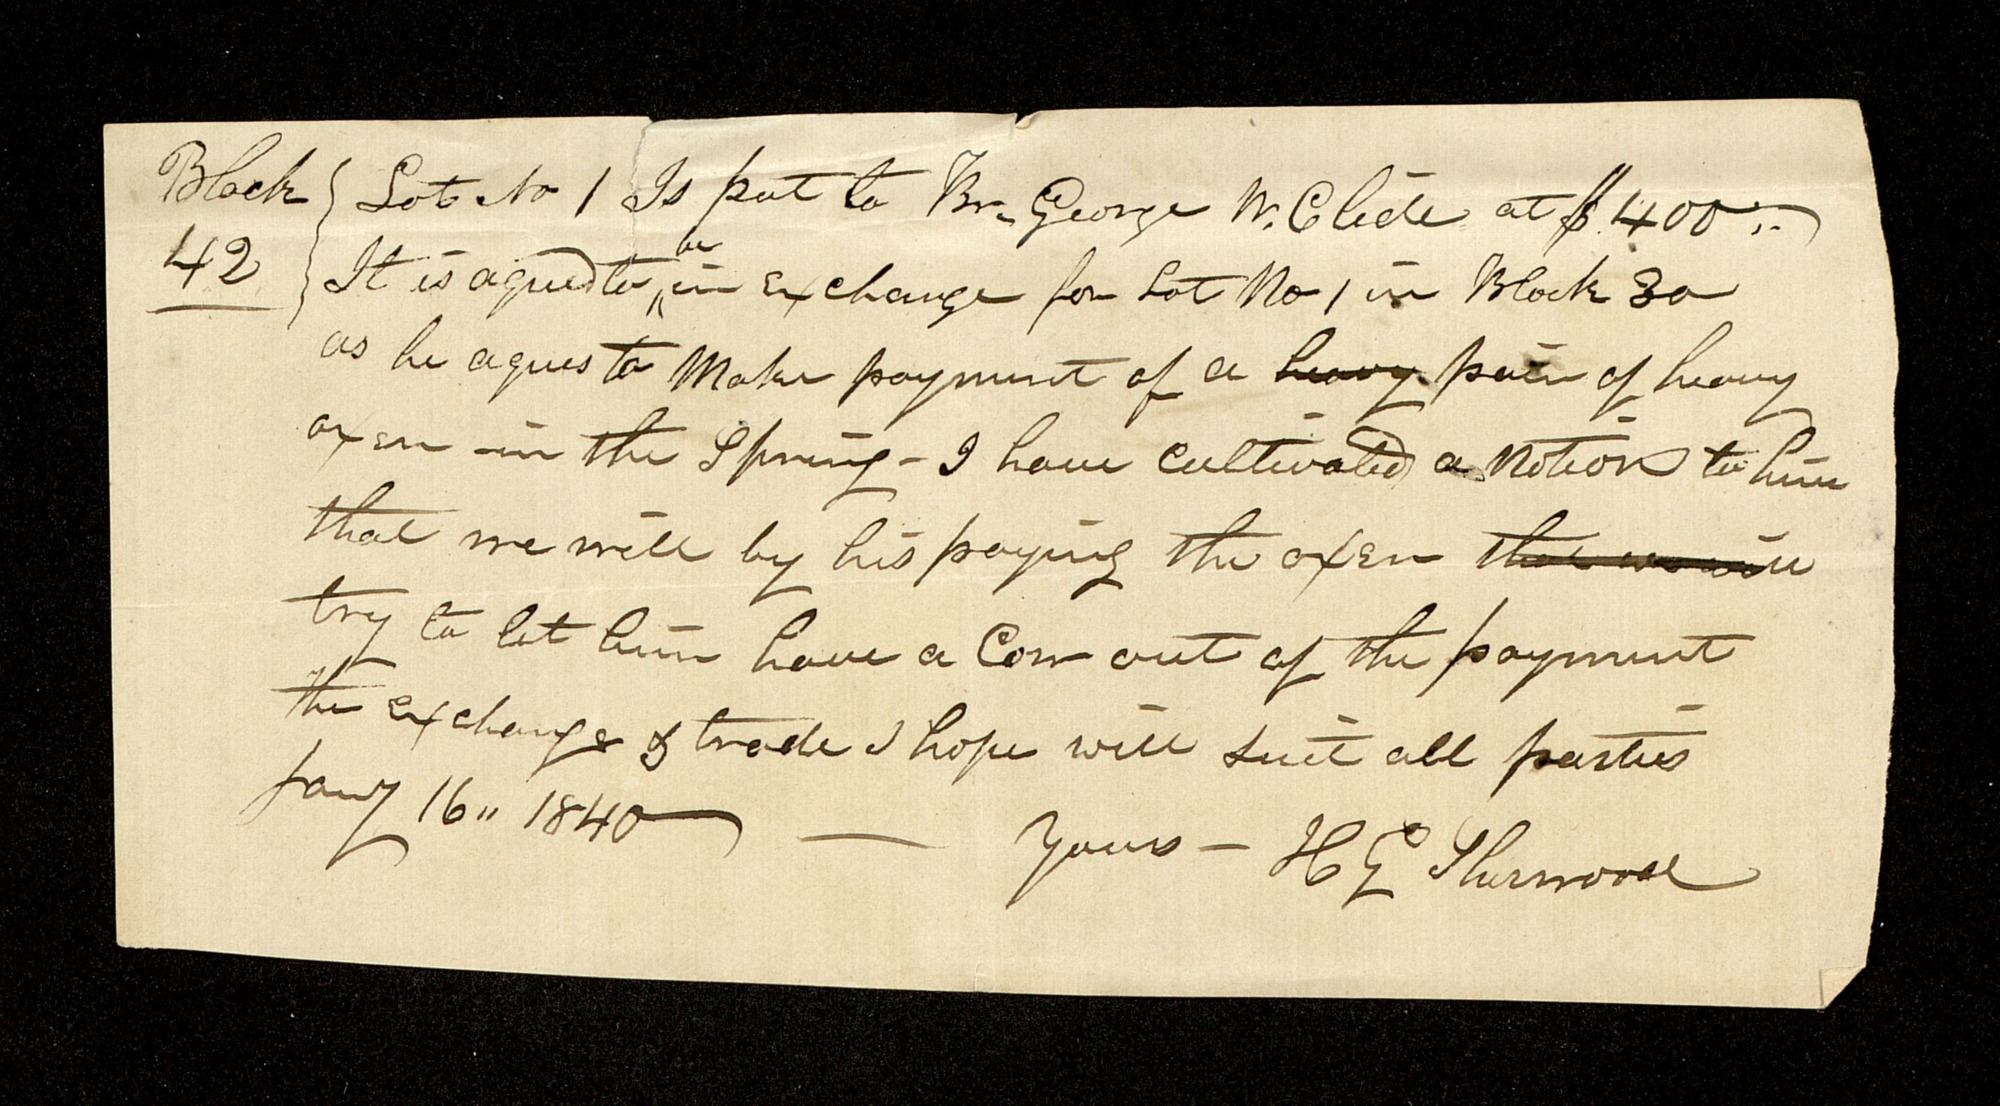 Block } Lot No 1 Is put to Br. George W. Clide at $400..
42 } It is agued to be in exchange for Lot No 1 in Block 30
as he agues to Make payment of a heavy pair of heavy
oxen in the Spring - I have cultivated a Notion to him
that we will by his paying the oxen that we will
try to let him have a Cow out of the payment
the exchange & trade I hope will suit all parties
Jany 16,, 1840 — Yours - H G Sherwood